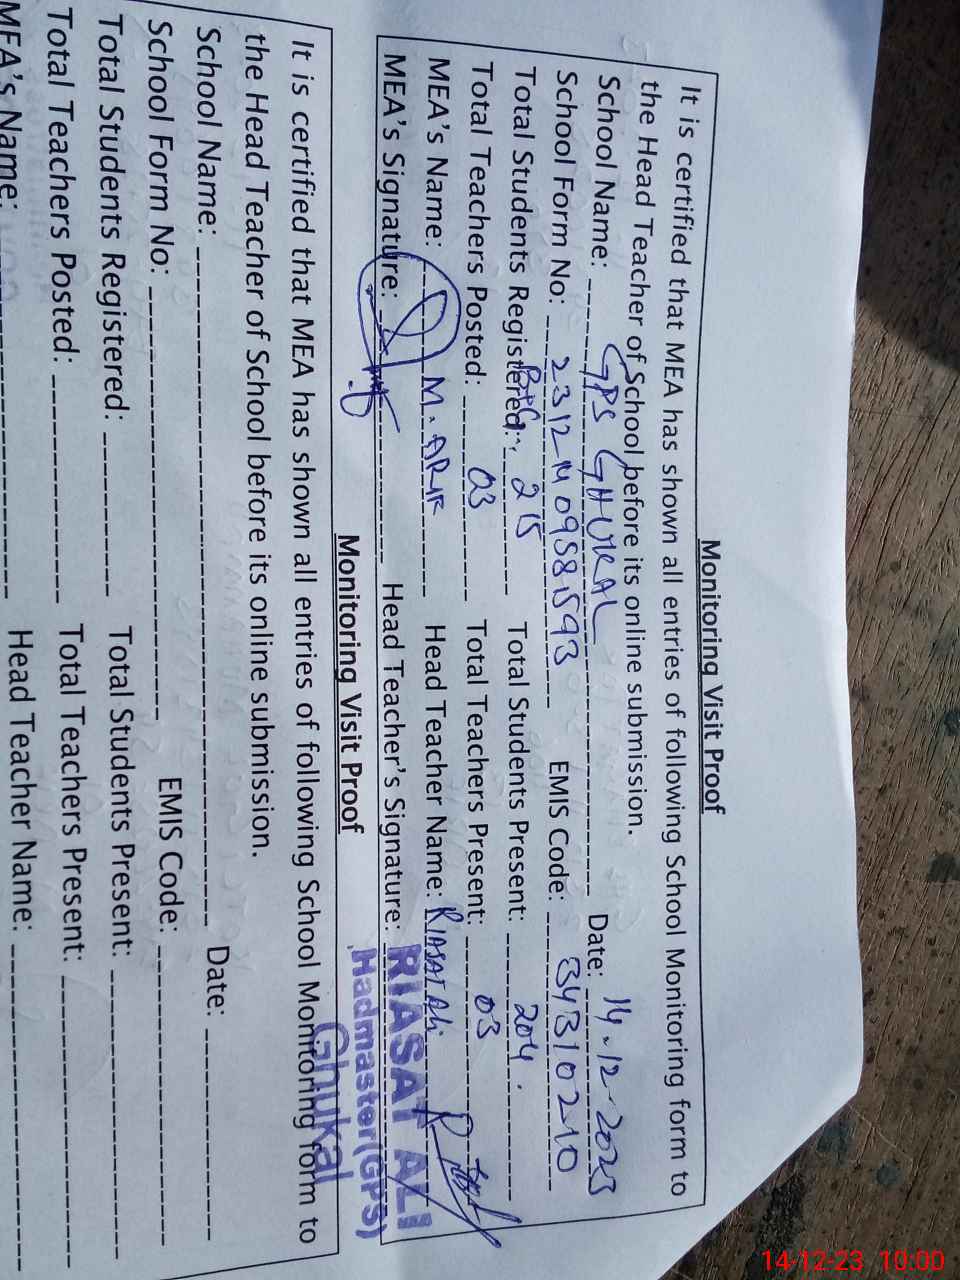 Monitoring Visit Proof
It is certified that MEA has shown all entries of following School Monitoring form to
the Head Teacher of School before its online submission.
School Name: GPS GHUKAL Date: 14.12.2023
School Form No: 23121409581593 EMIS Code: 34310210
Total Students Registered: 215 Total Students Present: 204.
Total Teachers Posted: 03 Total Teachers Present: 03
MEA's Name: M. ARIF Head Teacher Name: RIASAT Ali
MEA's Signature: Head Teacher's Signature:
RIASAT ALI
Hadmaster(GPS)
Ghukal
Monitoring Visit Proof
It is certified that MEA has shown all entries of following School Monitoring form to
the Head Teacher of School before its online submission.
School Name: Date:
School Form No: EMIS Code:
Total Students Registered: Total Students Present:
Total Teachers Posted: Total Teachers Present:
MEA's Name: Head Teacher Name:
14-12-23 10:00